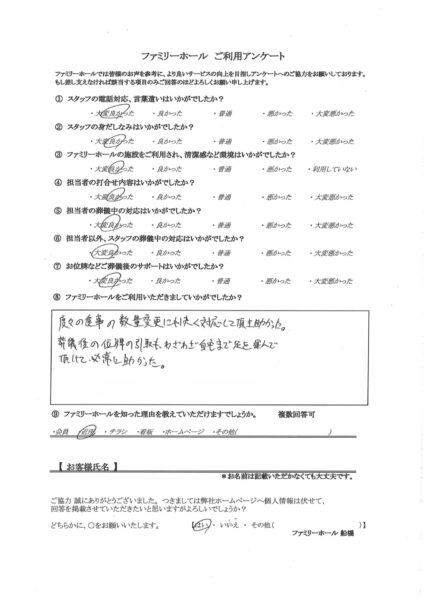 ファミリーホール ご利用アンケート
ファミリーホールでは皆様のお声を参考に、より良いサービスの向上を目指しアンケートへのご協力をお願いしております。
もし差し支えなければ該当する項目のみご回答のほどよろしくお願い申し上げます。
① スタッフの電話対応、言葉遣いはいかがでしたか？
・大変良かった ・良かった ・普通 ・悪かった ・大変悪かった
② スタッフの身だしなみはいかがでしたか？
・大変良かった ・良かった ・普通 ・悪かった ・大変悪かった
③ ファミリーホールの施設をご利用され、清潔感など環境はいかがでしたか？
・大変良かった ・良かった ・普通 ・悪かった ・利用していない
④ 担当者の打合せ内容はいかがでしたか？
・大変良かった ・良かった ・普通 ・悪かった ・大変悪かった
⑤ 担当者の葬儀中の対応はいかがでしたか？
・大変良かった ・良かった ・普通 ・悪かった ・大変悪かった
⑥ 担当者以外、スタッフの葬儀中の対応はいかがでしたか？
・大変良かった ・良かった ・普通 ・悪かった ・大変悪かった
⑦ お位牌などご葬儀後のサポートはいかがでしたか？
・大変良かった ・良かった ・普通 ・悪かった ・大変悪かった
⑧ ファミリーホールをご利用いただきましていかがでしたか？
度々の食事の数量変更に対応して頂き助かった。
葬儀後の位牌の引取も、わざわざ自宅まで足を運んで
頂けて、非常に助かった。
⑨ ファミリーホールを知った理由を教えていただけますでしょうか。 複数回答可
・会員 ・チラシ ・看板 ・ホームページ ・その他( )
【 お客様氏名 】
＊お名前は記載いただかなくても大丈夫です。
ご協力 誠にありがとうございました。 つきましては弊社ホームページへ個人情報は伏せて、
回答を掲載させていただきたいと思いますがよろしいでしょうか？
どちらかに、〇をお願いいたします。 【はい ・ いいえ ・ その他( )】
ファミリーホール 船橋